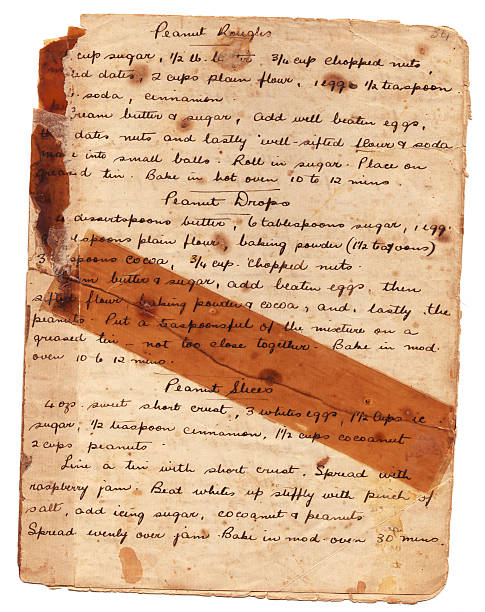 Peanut Roughs
34.
cup sugar, 1/2 lb. 3/4 cup chopped nuts,
dates, 2 cups plain flour, 1 egg 1/2 teaspoon
soda, cinnamon.
butter & sugar, Add well beaten eggs,
dates nuts and lastly well-sifted flour & soda
into small balls. Roll in sugar. Place on
greased tin. Bake in hot oven 10 to 12 mins
Peanut Drops
dessertspoons butter, 6 tablespoons sugar, 1 egg.
plain flour, baking powder (1 1/2
3 cocoa, 3/4 cup chopped nuts.
butter & sugar, add beaten eggs, then
sifted flour baking powder & cocoa, and, lastly, the
peanuts. Put a teaspoonsful of the mixture on a
greased tin - not too close together. Bake in mod.
oven 10 to 12 mins.
Peanut Slices
4 ozs. sweet short crust, 3 whites eggs, 1 1/2 cups ic
sugar, 1/2 teaspoon cinnamon, 1 1/2 cups cocoanut
2 cups peanuts
Line a tin with short crust. Spread with
raspberry jam. Beat whites up stiffly with pinch of
salt, add icing sugar, cocoanut & peanuts
Spread evenly over jam. Bake in mod. oven 30 mins.